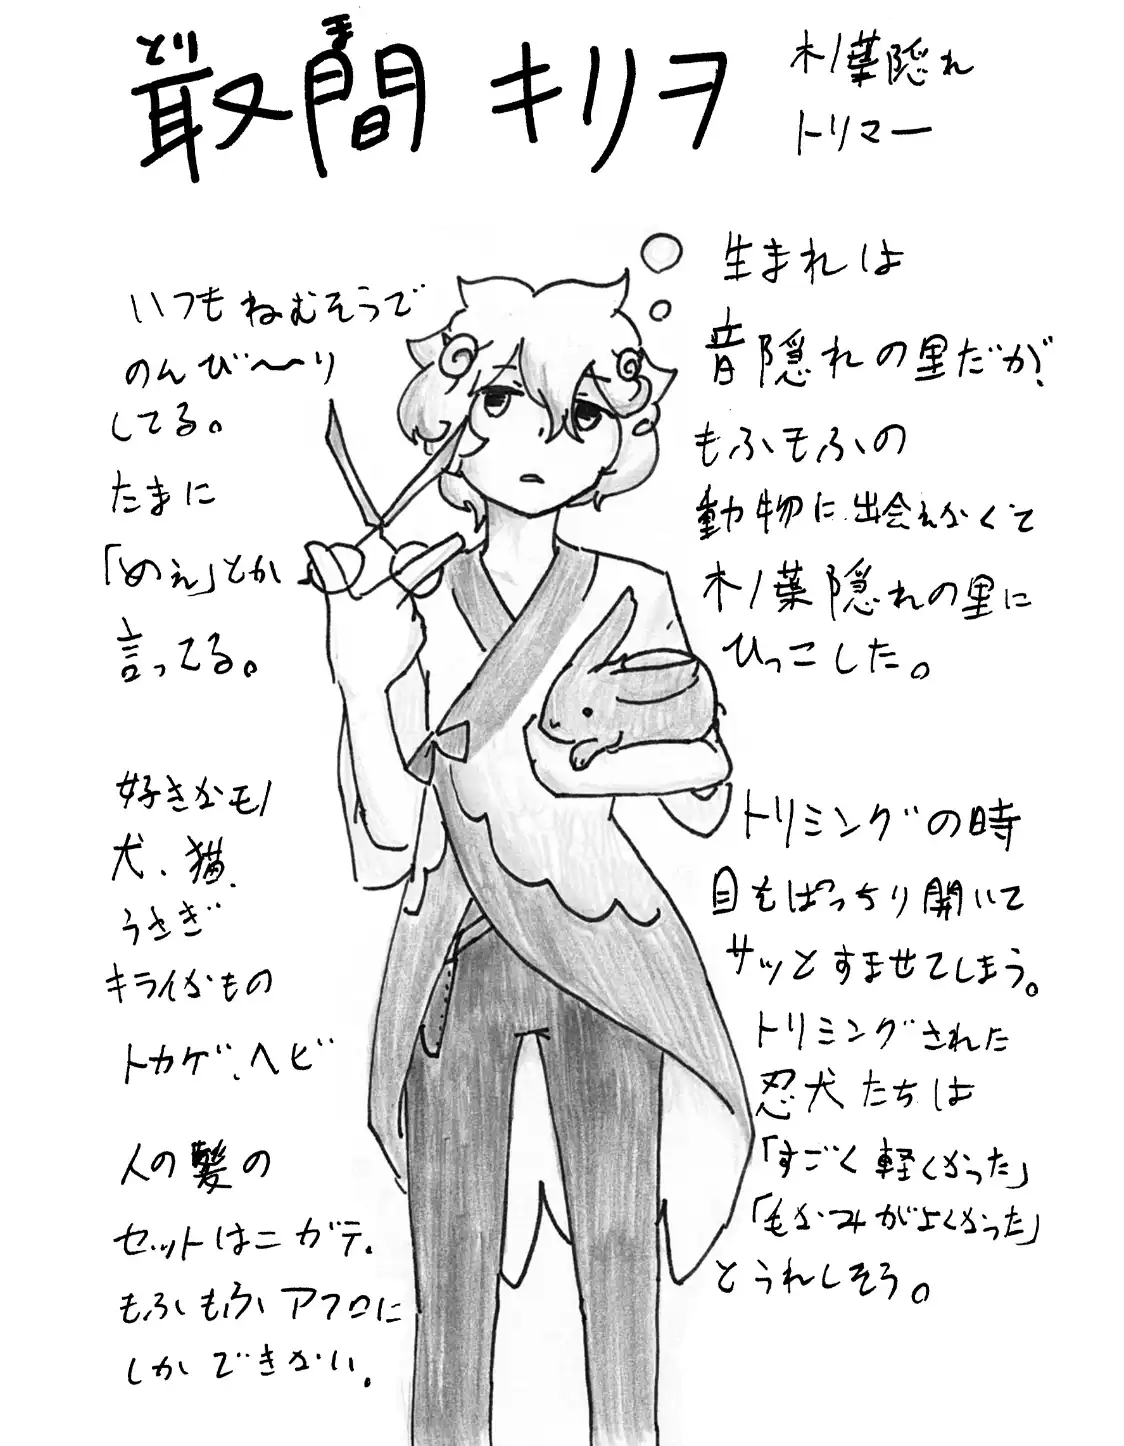 とり ま
最間 キリヲ
木ノ葉隠れ
トリマー
いつもねむそうで
のんび〜〜り
してる。
たまに
「めぇ」とか
言ってる。
好きなモノ
犬、猫、
うさぎ
キライなもの
トカゲ、ヘビ
人の髪の
セットはニガテ、
もふもふアフロに
しかできない、
生まれは
音隠れの里だが、
もふもふの
動物に出会えなくて
木ノ葉隠れの里に
ひっこした。
トリミングの時
目をぱっちり開いて
サッとすませてしまう。
トリミングされた
忍犬たちは
「すごく軽くなった」
「毛なみがよくなった」
とうれしそう。